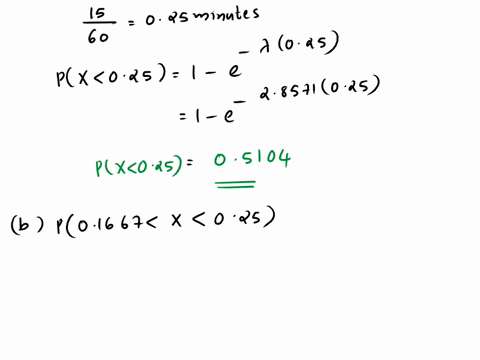 15/60 = 0.25 minutes
P(X < 0.25) = 1 - e^{-λ(0.25)}
= 1 - e^{-2.8571(0.25)}
P(X<0.25) = 0.5104
(b) P(0.1667 < X < 0.25)